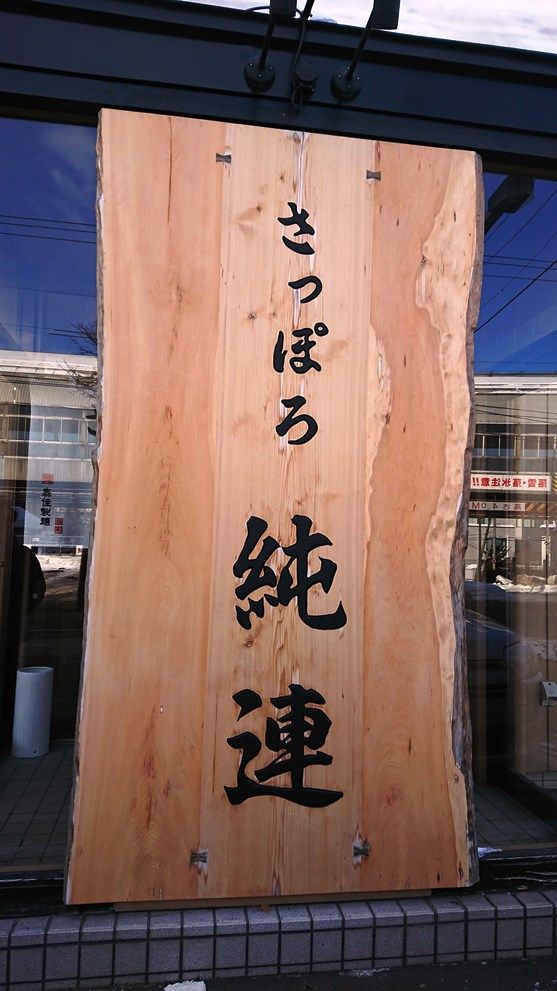 さっぽろ
純連
森住製麺
落雪・落氷注意!!
高さ4.0M